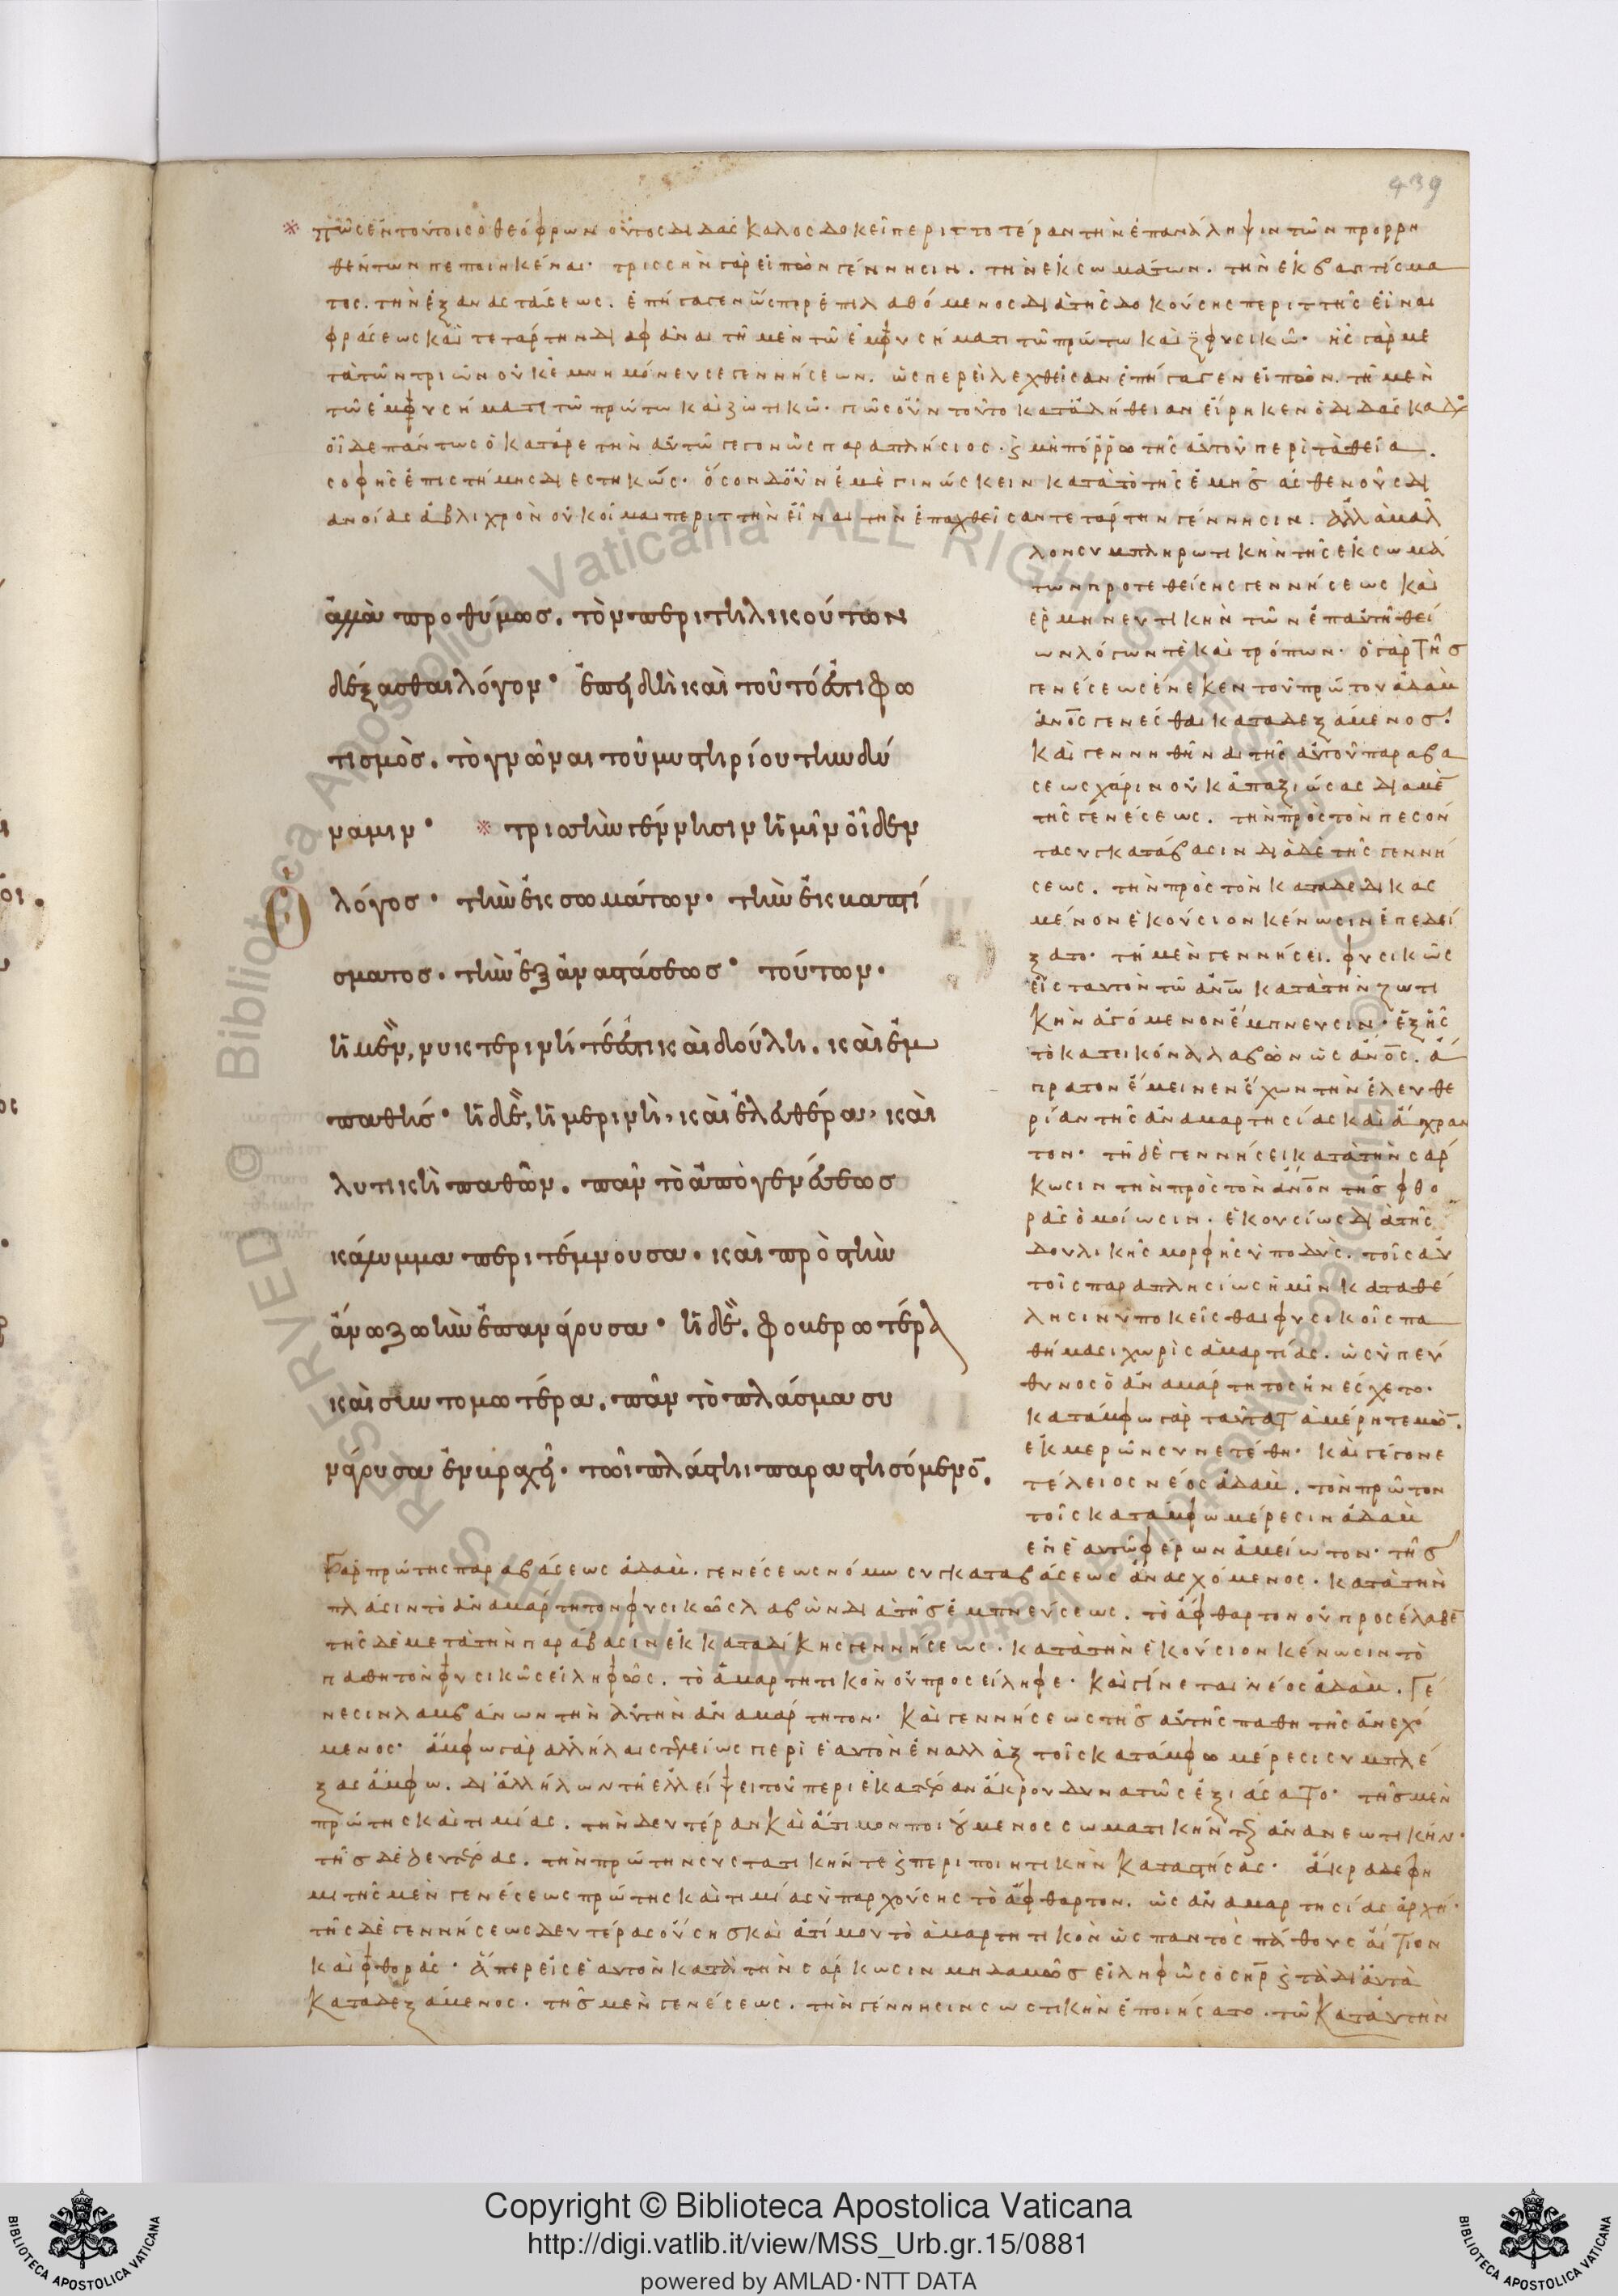 439
※ πῶς ἐν τούτοις ὁ θεόφρων οὗτος διδάσκαλος δοκεῖ περιττοτέραν τὴν ἐπανάληψιν τῶν προρρη
θέντων πεποιηκέναι· τρισσὴν γὰρ εἰπὼν γέννησιν. τὴν ἐκ σωμάτων. τὴν ἐκ βαπτίσμα
τος. τὴν ἐξ ἀναστάσεως. ἐπήγαγεν ὥσπερ ἐπιλαθόμενος διὰ τῆς δοκούσης περιττῆς εἶναι
φράσεως καὶ τετάρτην
τὰ τῶν τριῶν οὐκ ἐμνημόνευσε γεννήσεων. ὡσπερεὶ λεχθεῖσαν ἐπήγαγεν εἰπών. τῇ μὲν
τῶ ἐμφυσήματι τῶ πρώτω καὶ ζωτικῶ· πῶς οὖν τοῦτο κατὰ ἀλήθειαν εἴρηκεν ὁ διδάσκαλ
οἶδε πάντως ὁ κατ' ἀρετὴν αὐτῶ γεγονὼς παραπλήσιος· ϗ μὴ πόρρω τῆς αὐτοῦ περὶ τὰ θεῖα
σοφῆς ἐπιστήμης διεστηκώς· ὅσον δ' οὖν ἐμὲ γινώσκειν κατὰ τὸ τῆς ἐμῆς ἀσθενοῦς δι
ανοίας ἀβληχρὸν οὐκ οἶμαι περιττὴν εἶναι τὴν ἐπαχθεῖσαν τετάρτην γέννησιν. ἀλλὰ μᾶλ
λον συμπληρωτικὴν τῆς ἐκ σωμά
των προτεθείσης γεννήσεως καὶ
ἑρμηνευτικὴν τῶν ἐπ' αὐτῇ θεί
ων λόγων τὲ καὶ τρόπων· ὁ γὰρ τῆς
γενέσεως ἕνεκεν τοῦ πρώτου ἀδὰμ
ἄνος γενέσθαι καταδεξάμενος.
καὶ γεννηθῆναι τῆς αὐτοῦ παραβά
σεως χάριν οὐκ ἀπαξιώσας διὰ μὲ
τῆς γενέσεως. τὴν πρὸς τὸν πεσόν
τα συγκατάβασιν διὰ δὲ τῆς γεννή
σεως. τὴν πρὸς τὸν καταδεδικας
μένον ἑκούσιον κένωσιν ἐπεδεί
ξατο· τῇ μὲν γεννήσει. φυσικῶς
εἰς ταυτὸν τῶ ἀνω κατὰ τὴν ζωτι
κὴν ἀγόμενον ἔμπνευσιν· ἐξ ἧς
τὸ κατ' εἰκόνα λαβὼν ὡς ἄνος. ἄ
πρατον ἔμεινεν ἔχων τὴν ἐλευθε
ρίαν τῆς ἀναμαρτησίας καὶ ἄχραν
τον· τῇ δὲ γεννήσει κατὰ τὴν σάρ
κωσιν τὴν πρὸς τὸν ἄνον τῆς φθο
ρᾶς ὁμοίωσιν. ἑκουσίως διὰ τῆς
δουλικῆς μορφῆς ὑποδύς. τοῖς αὐ
τοῖς παραπλησίως ἡμῖν κατὰ θέ
λησιν ὑποκεῖσθαι φυσικοῖς πα
θήμασι χωρὶς ἁμαρτίας. ὡς ὑπεύ
θυνος ὁ ἀναμάρτητος ἠνέσχετο·
κατ' ἄμφω γὰρ ταῦτα τὰ μέρη τεμών.
ἐκ μερῶν συνετέθη· καὶ γέγονε
τέλειος νέος ἀδάμ. τὸν πρῶτον
τοῖς κατ' ἄμφω μέρεσιν ἀδὰμ
ἐν ἑαυτῶ φέρων ἀμείωτον· τῆς
ἀλλὰ προθύμως. τὸν περὶ τηλικούτων
δέξασθαι λόγον· ἐπειδὴ καὶ τοῦτό ἐστι φω
τισμὸς. τὸ γνῶναι τοῦ μυστηρίου τὴν δύ
ναμιν· ※ τρισσὴν γέννησιν ἡμῖν οἶδεν
ὁ λόγος· τὴν ἐκ σωμάτων· τὴν ἐκ βαπτί
σματος. τὴν ἐξ ἀναστάσεως· τούτων.
ἡ μὲν, νυκτερινή τέ ἐστι καὶ δούλη. καὶ ἐμ
παθής· ἡ δὲ, ἡμερινὴ, καὶ ἐλευθέρα, καὶ
λυτικὴ παθῶν. πᾶν τὸ ἀπὸ γενέσεως
κάλυμμα περιτέμνουσα. καὶ πρὸς τὴν
ἄνω ζωὴν ἐπανάγουσα· ἡ δὲ. φοβερωτέρα
καὶ συντομωτέρα. πᾶν τὸ πλάσμα συ
νάγουσα ἐν βραχεῖ. τῶι πλάστηι παραστησόμενον.
γὰρ πρώτης παραβάσεως ἀδὰμ. γενέσεως νόμω συγκαταβάσεως ἀνασχόμενος. κατὰ τὴν
πλάσιν τὸ ἀναμάρτητον φυσικῶς λαβὼν διὰ τῆς ἐμπνεύσεως. τὸ ἄφθαρτον οὐ προσέλαβε
τῆς δὲ μετὰ τὴν παράβασιν ἐκ καταδίκης γεννήσεως. κατὰ τὴν ἑκούσιον κένωσιν τὸ
παθητὸν φυσικῶς εἰληφώς. τὸ ἁμαρτητικὸν οὐ προσείληφε· καὶ γίνεται νέος ἀδάμ. γέ
νεσιν λαμβάνων τὴν αὐτὴν ἀναμάρτητον· καὶ γεννήσεως τῆς αὐτῆς παθητῆς ἀνεχό
μενος· ἄμφω γὰρ ἀλλήλαις περὶ ἑαυτὸν ἐναλλὰξ τοῖς κατ' ἄμφω μέρεσι συμπλέ
ξας ἄμφω. δι' ἀλλήλων τῇ ἐλλείψει τοῦ περὶ ἑκατέραν ἄκρου δυνατῶς ἐξιάσατο· τῆς μὲν
πρώτης καὶ τιμίας. τὴν δευτέραν καὶ ἄτιμον ποιούμενος σωματικὴν τε ϗ ἀνανεωτικήν.
τῆς δὲ δευτέρας. τὴν πρώτην συστατικήν τε ϗ περιποιητικὴν καταστήσας· ἄκρα δέ φη
μι τῆς μὲν γενέσεως πρώτης καὶ τιμίας ὑπαρχούσης τὸ ἄφθαρτον. ὡς ἀναμαρτησίας ἀρχή.
τῆς δὲ γεννήσεως δευτέρας οὔσης καὶ ἀτίμου τὸ ἁμαρτητικὸν ὡς παντὸς πάθους αἴτιον
καὶ φθορᾶς· ἅπερ εἰς ἑαυτὸν κατὰ τὴν σάρκωσιν μηδαμῶς εἰληφὼς ὁ σηρ ϗ τὰ δι' αὐτὰ
καταδεξάμενος. τῆς μὲν γενέσεως. τὴν γέννησιν σωστικὴν ἐποιήσατο. τῶ κατ' αὐτὴν
Copyright © Biblioteca Apostolica Vaticana
http://digi.vatlib.it/view/MSS_Urb.gr.15/0881
powered by AMLAD·NTT DATA